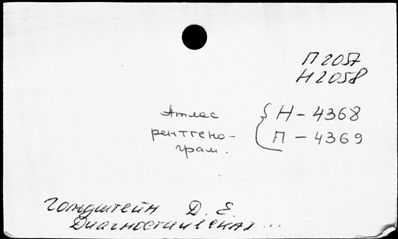 П2057
Н2058
Атлас
рентгено-
грам.
Н-4368
П-4369
Гольдштейн Д. Е.
Диагностическая...